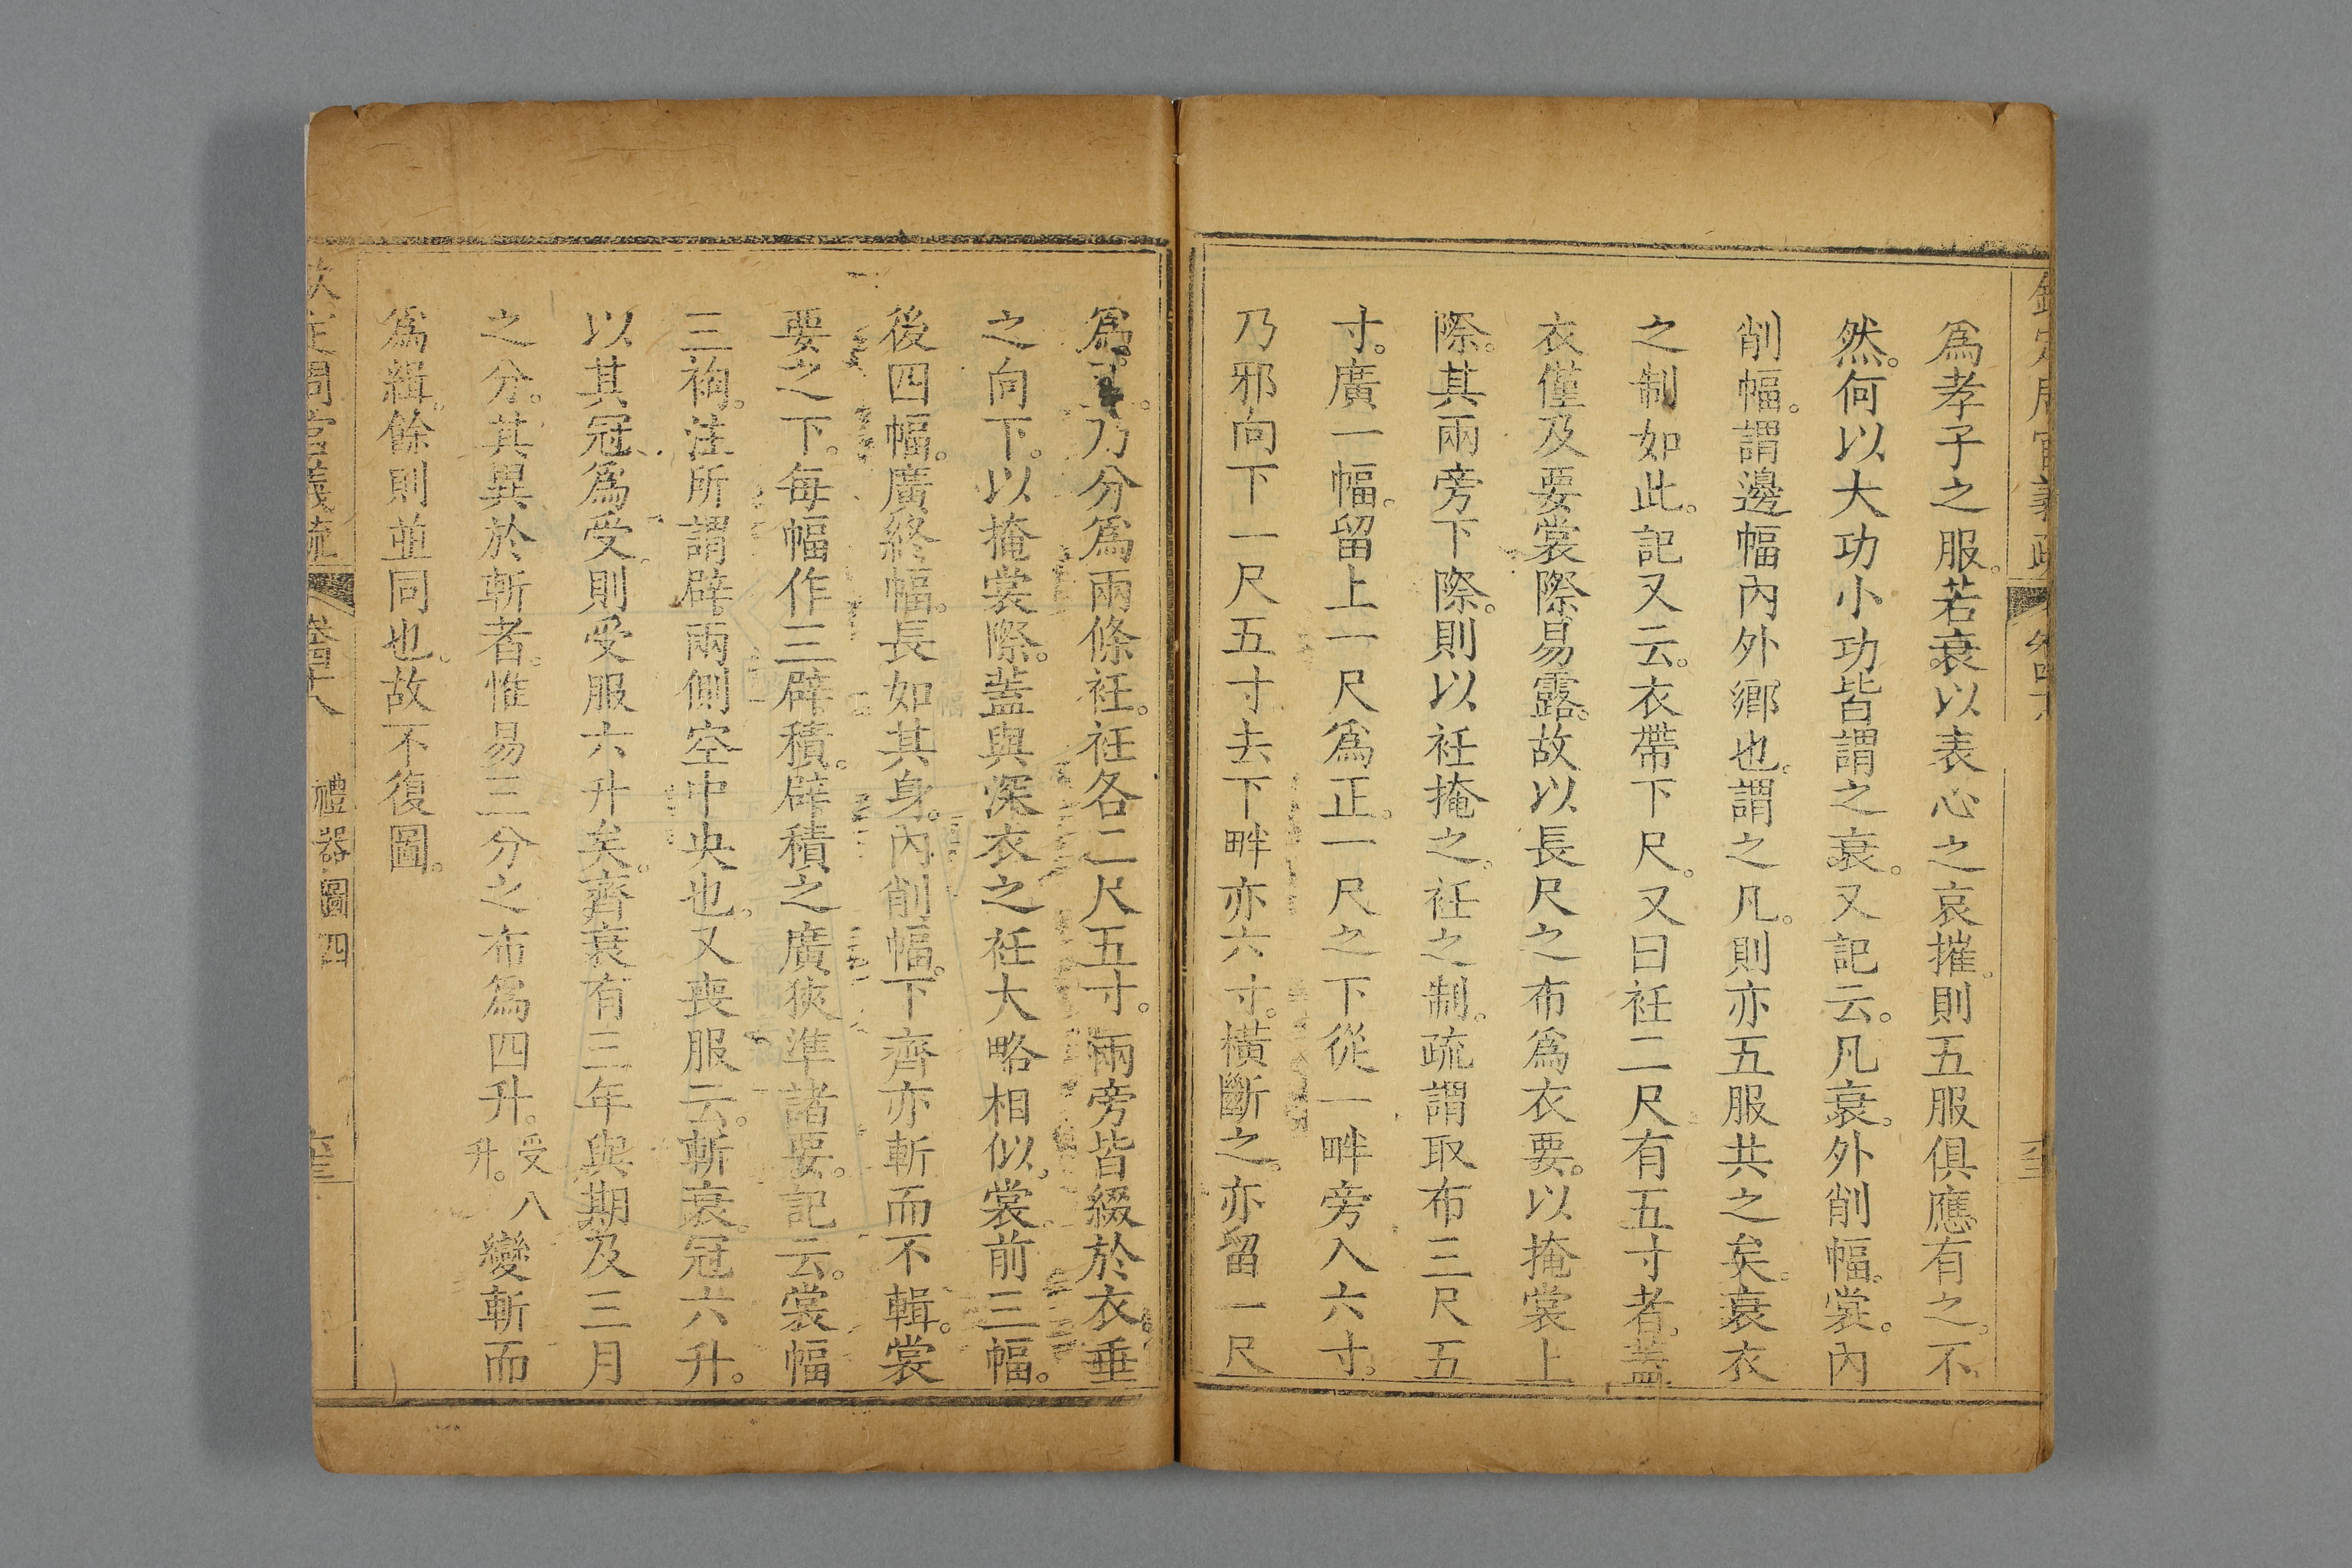 為孝子之服。若衰以表心之哀摧。則五服俱應有之。不
然。何以大功小功皆謂之衰。又記云。凡衰。外削幅。裳。內
削幅。謂邊幅內外鄉也。謂之凡。則亦五服共之矣。衰衣
之制如此。記又云。衣帶下尺。又曰衽二尺有五寸者。蓋
衣僅及要。裳際易露。故以長尺之布為衣要。以掩裳上
際。其兩旁下際。則以衽掩之。衽之制。疏謂取布三尺五
寸。廣一幅。留上一尺為正。一尺之下從一畔旁入六寸。
乃邪向下一尺五寸去下畔亦六寸。橫斷之。亦留一尺
為。乃分為兩條衽。衽各二尺五寸。兩旁皆綴於衣。垂
之向下。以掩裳際。蓋與深衣之衽大略相似。裳前三幅。
後四幅。廣終幅。長如其身。內削幅。下齊亦斬而不輯。裳
要之下。每幅作三辟積。辟積之廣狹準諸要。記云。裳幅
三袧。注所謂辟兩側空中央也。又喪服云。斬衰。冠六升。
以其冠為受。則受服六升矣。齊衰有三年與期及三月
之分。其異於斬者。惟易三分之布為四升。受八升。變斬而
為緝。餘則並同也。故不復圖。
欽定周官義疏 卷四十八 禮器圖四